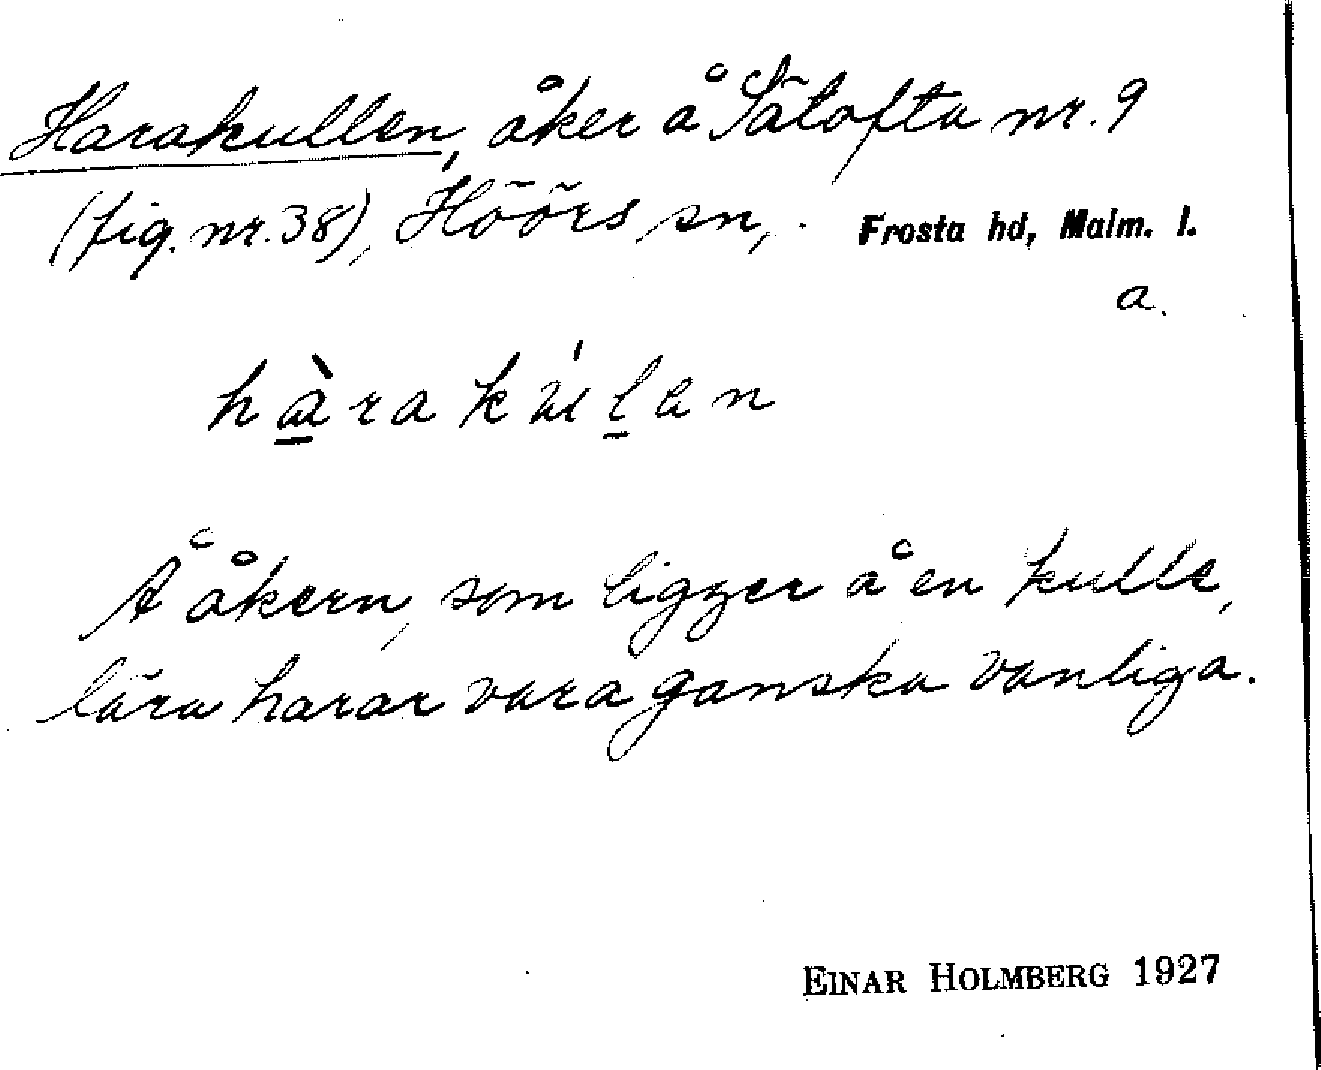 Harakullen, åker å Sätofta nr. 9
(fig. nr. 38), Höörs sn, Frosta hd, Malm. l.
a.
hàrakúlen
Å åkern, som ligger å en kulle,
lära harar vara ganska vanliga.
EINAR HOLMBERG 1927